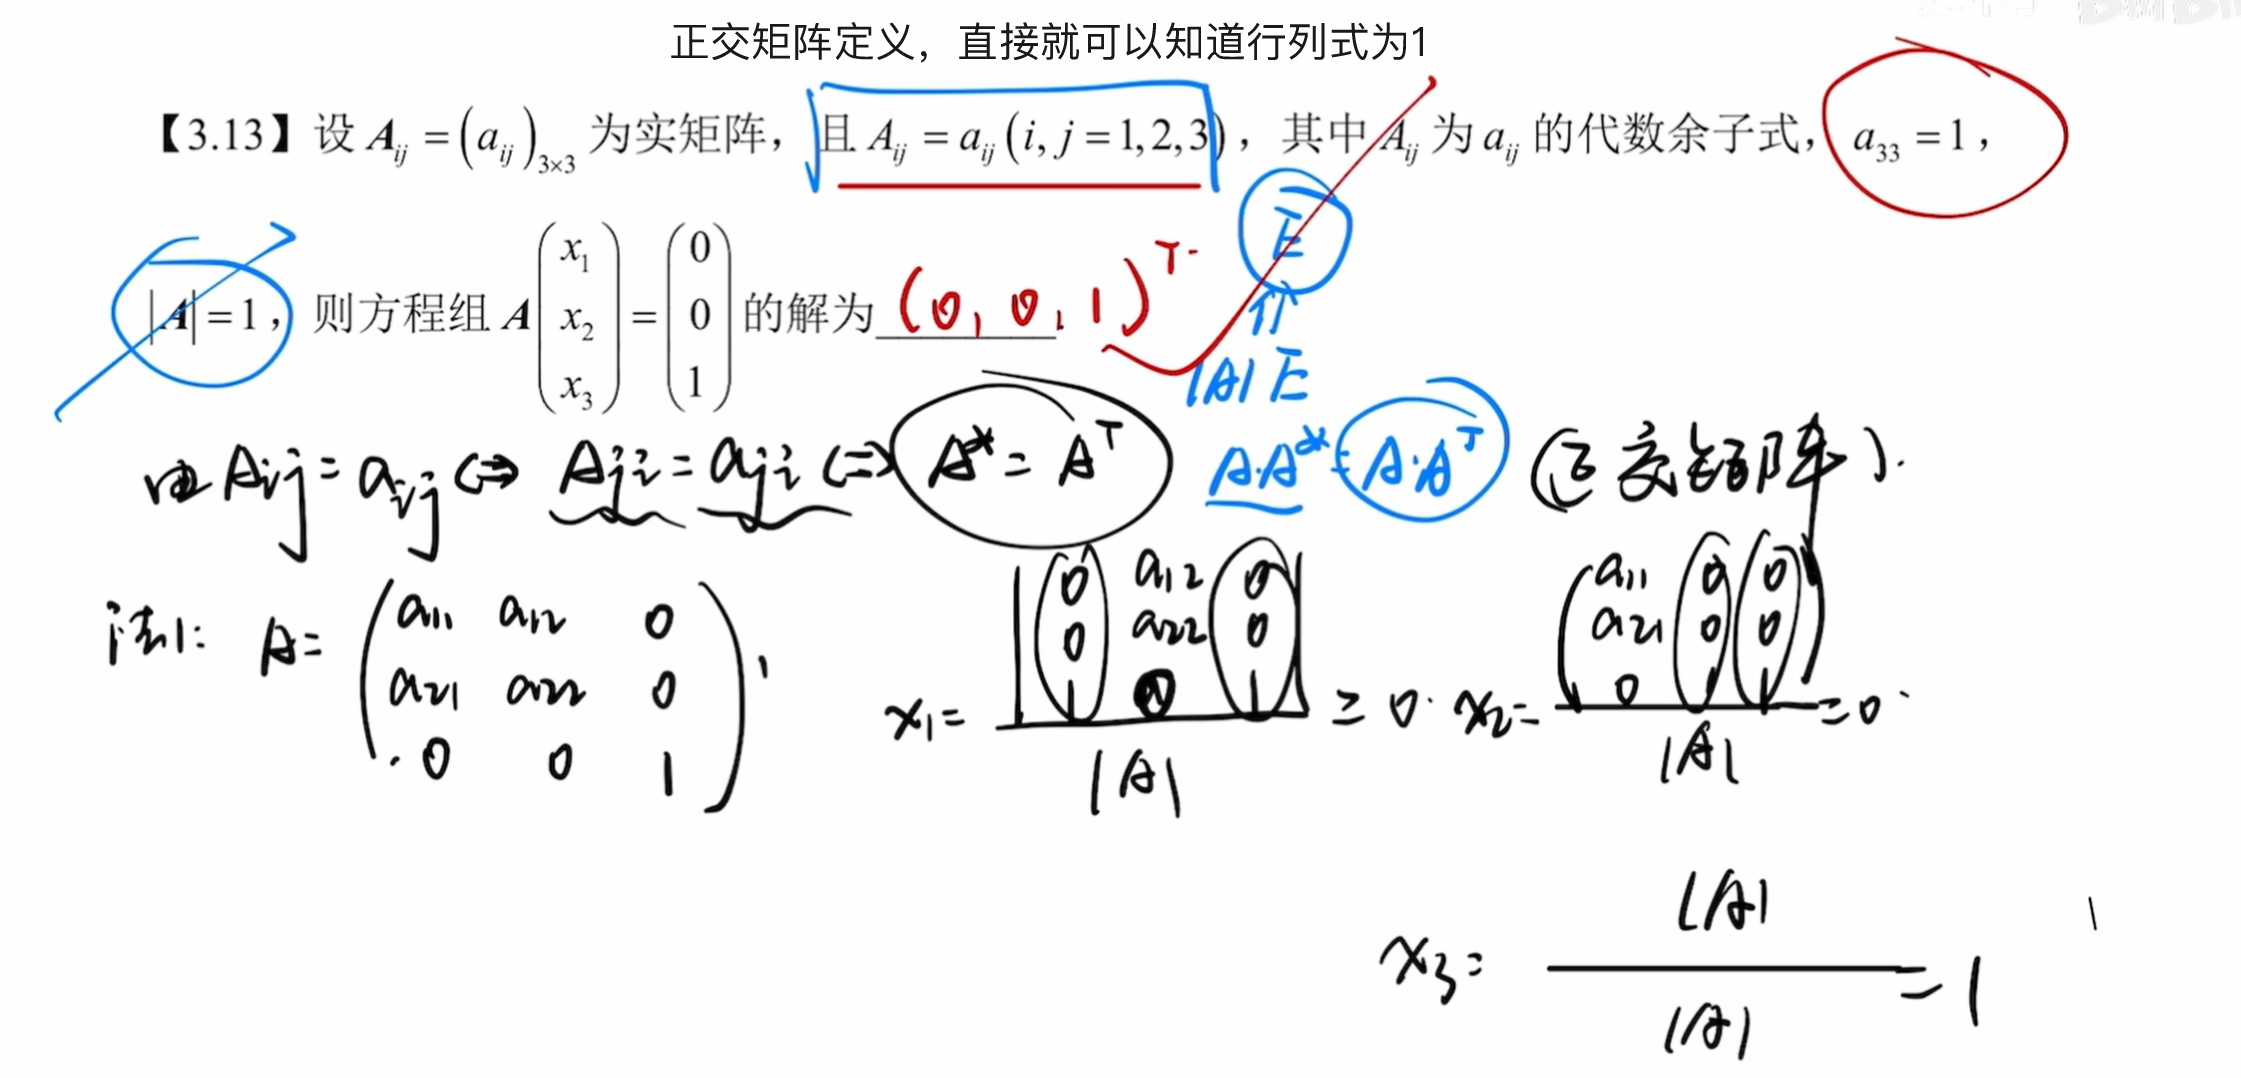 正交矩阵定义，直接就可以知道行列式为1
【3.13】设 A_{ij} = (a_{ij})_{3×3} 为实矩阵，且 A_{ij} = a_{ij} (i, j = 1,2,3)，其中 A_{ij} 为 a_{ij} 的代数余子式，a_{33} = 1，
|A| = 1，则方程组 A (x_1 x_2 x_3) = (0 0 1) 的解为 (0, 0, 1)^T.
E
⇑
|A|E
由 A_{ij} = a_{ij} ⇔ A_{ji} = a_{ji} ⇔ A^* = A^T A·A^* = A·A^T (正交矩阵).
法1: A = (a_{11} a_{12} 0
a_{21} a_{22} 0
0 0 1),
x_1 = |0 a_{12} 0
0 a_{22} 0
1 0 1| / |A| = 0. x_2 = (a_{11} 0 0
a_{21} 0 0
0 1 1) / |A| = 0.
x_3 = |A| / |A| = 1